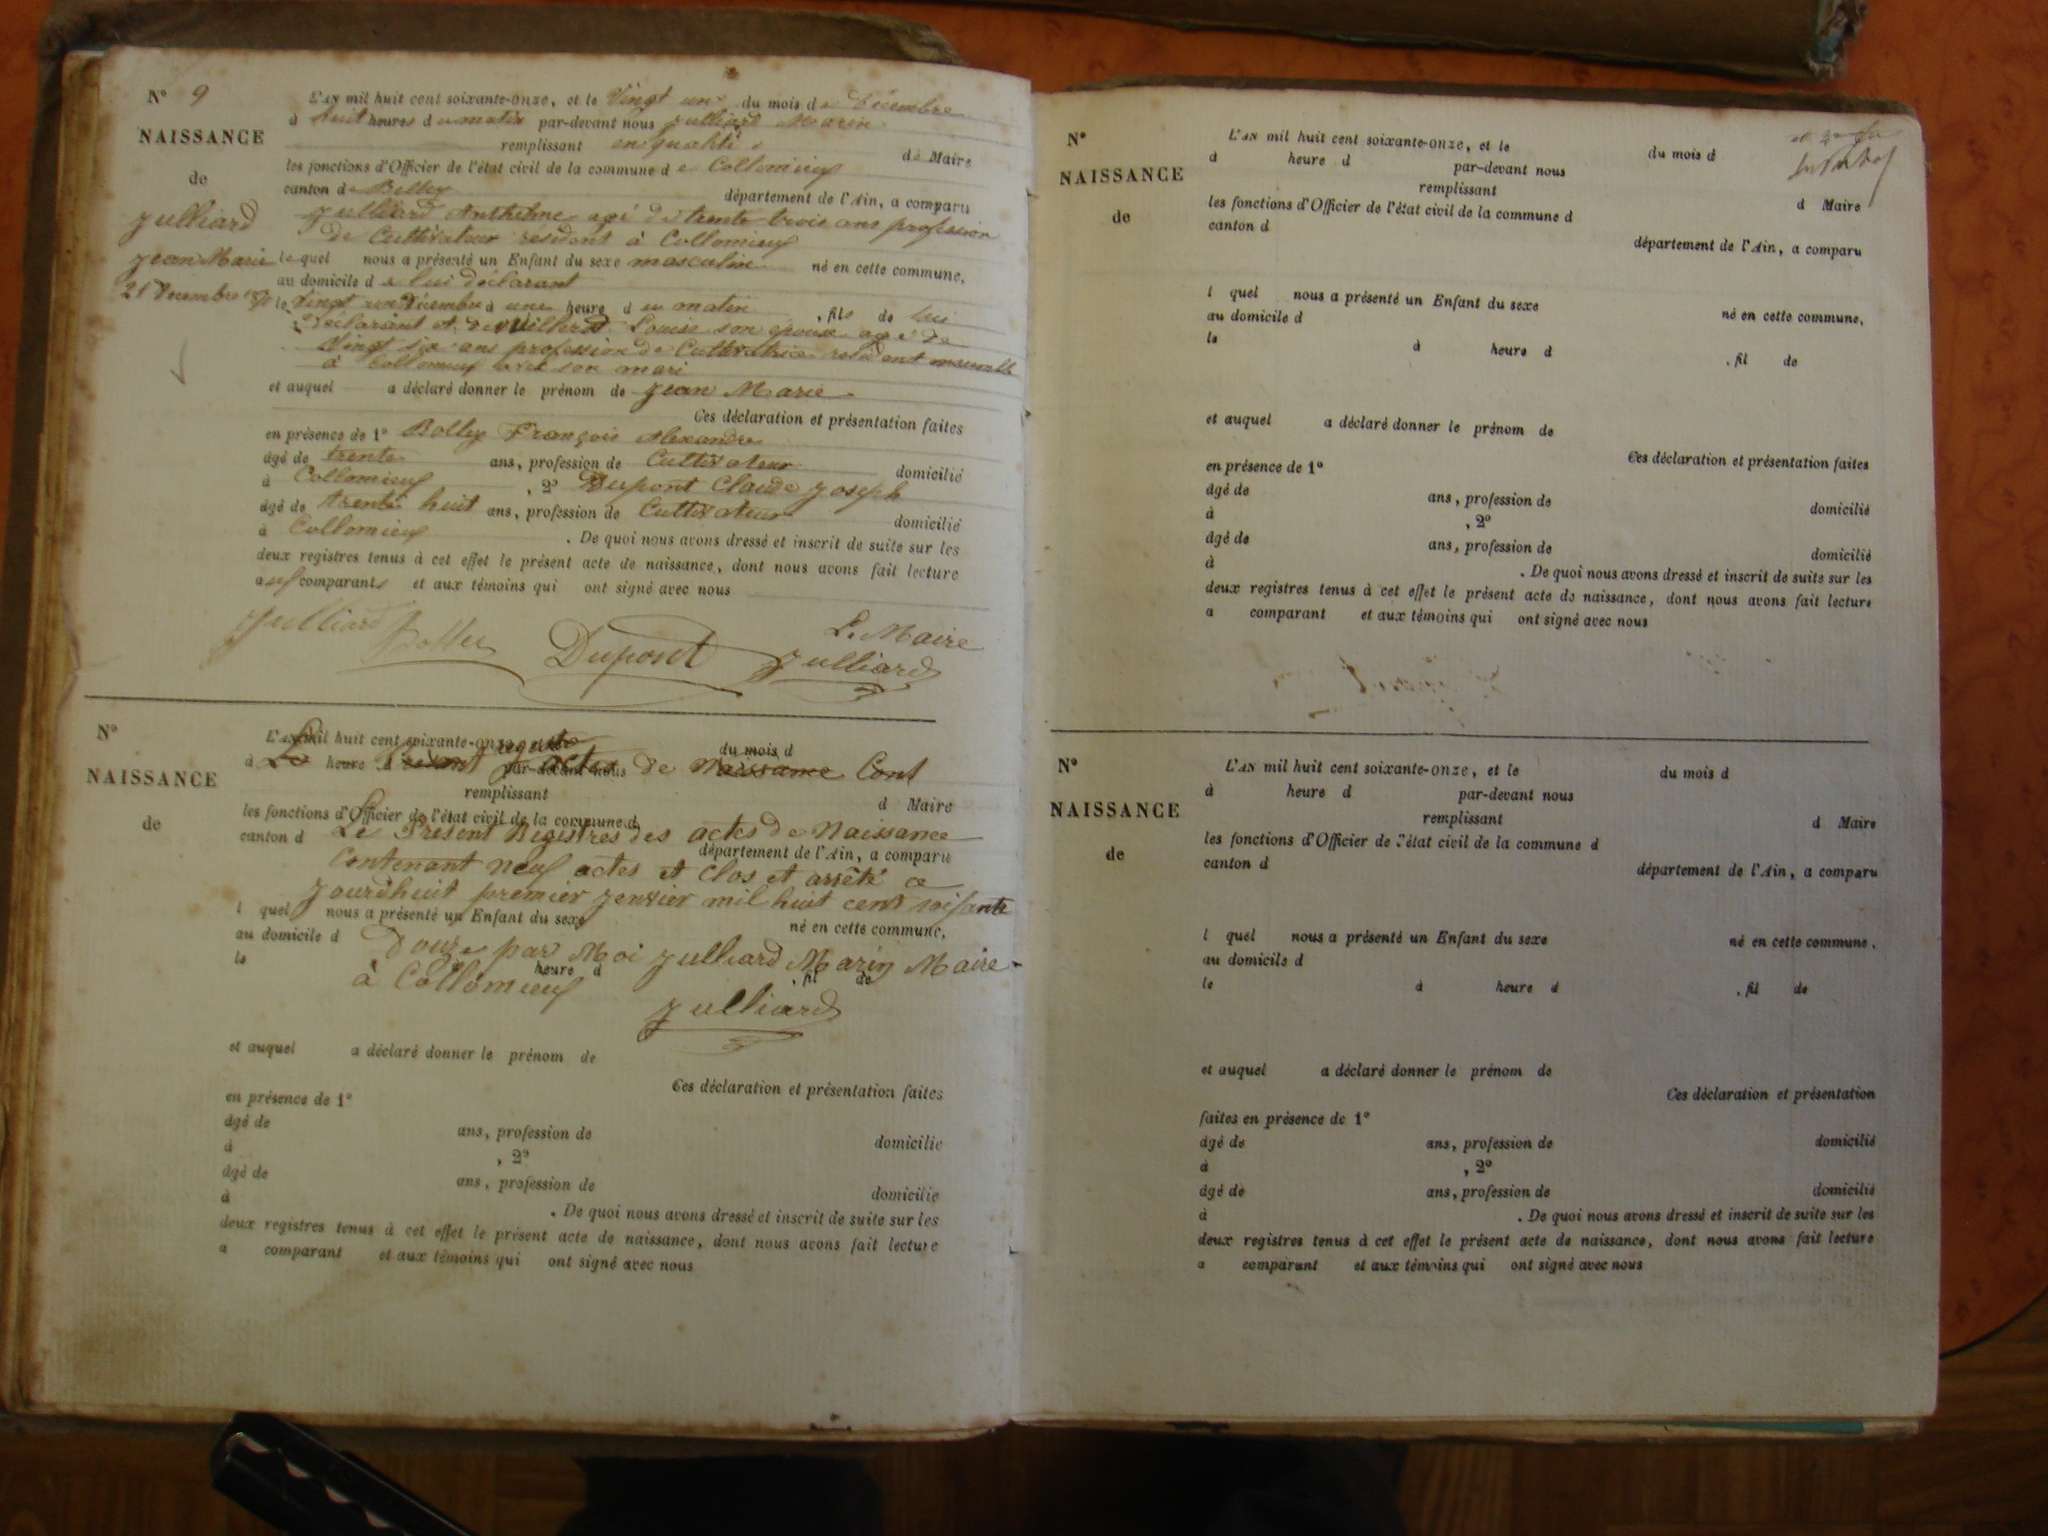 N° 9
NAISSANCE
de
Julliard
Jean Marie
21 Décembre
L'AN mil huit cent soixante-onze, et le Vingt un du mois de Décembre
à huit heures du matin par-devant nous Julliard Marin
remplissant en qualité de Maire
les fonctions d'Officier de l'état civil de la commune de Collomieux
canton de Belley département de l'Ain, a comparu
Julliard Anthelme agé de trente trois ans profession
de Cultivateur résident à Collomieux
lequel nous a présenté un Enfant du sexe masculin né en cette commune,
au domicile de lui déclarant
le Vingt un Décembre à une heure du matin, fils de lui
déclarant et de Louise son épouse agé de
Vingt six ans profession de Cultivatrice résident ensemble
à Collomieux avec son mari
et auquel a déclaré donner le prénom de Jean Marie
Ces déclaration et présentation faites
en présence de 1° Bolley François Alexandre
âgé de trente ans, profession de Cultivateur domicilié
à Collomieux, 2° Dupont Claude Joseph
âgé de trente huit ans, profession de Cultivateur domicilié
à Collomieux. De quoi nous avons dressé et inscrit de suite sur les
deux registres tenus à cet effet le présent acte de naissance, dont nous avons fait lecture
a comparants et aux témoins qui ont signé avec nous
Julliard Bolley Dupont Le Maire
Julliard
N°
NAISSANCE
de
L'AN mil huit cent soixante-onze
du mois d
à Le heure d présent par-devant nous actes de Naissance Cont
remplissant d Maire
les fonctions d'Officier de l'état civil de la commune d
canton d Le Présent Régistres des actes de Naissance
département de l'Ain, a comparu
Contenant neuf actes et clos et arrêté ce
jourdhuit premier Jenvier mil huit cent soisante
l quel nous a présenté un Enfant du sexe né en cette commune,
au domicile d Douze par Moi Julliard Marin Maire
le heure d , fil de
à Collomieux
Julliard
et auquel a déclaré donner le prénom de
Ces déclaration et présentation faites
en présence de 1°
âgé de ans, profession de domicilié
à , 2°
âgé de ans, profession de domicilié
à . De quoi nous avons dressé et inscrit de suite sur les
deux registres tenus à cet effet le présent acte de naissance, dont nous avons fait lecture
a comparant et aux témoins qui ont signé avec nous
N°
NAISSANCE
de
L'AN mil huit cent soixante-onze, et le du mois d
à heure d par-devant nous
remplissant d Maire
les fonctions d'Officier de l'état civil de la commune d
canton d département de l'Ain, a comparu
l quel nous a présenté un Enfant du sexe né en cette commune,
au domicile d
le à heure d , fil de
et auquel a déclaré donner le prénom de
Ces déclaration et présentation faites
en présence de 1°
âgé de ans, profession de domicilié
à , 2°
âgé de ans, profession de domicilié
à . De quoi nous avons dressé et inscrit de suite sur les
deux registres tenus à cet effet le présent acte de naissance, dont nous avons fait lecture
a comparant et aux témoins qui ont signé avec nous
N°
NAISSANCE
de
L'AN mil huit cent soixante-onze, et le du mois d
à heure d par-devant nous
remplissant d Maire
les fonctions d'Officier de l'état civil de la commune d
canton d département de l'Ain, a comparu
l quel nous a présenté un Enfant du sexe né en cette commune,
au domicile d
le à heure d , fil de
et auquel a déclaré donner le prénom de
Ces déclaration et présentation
faites en présence de 1°
âgé de ans, profession de domicilié
à , 2°
âgé de ans, profession de domicilié
à . De quoi nous avons dressé et inscrit de suite sur les
deux registres tenus à cet effet le présent acte de naissance, dont nous avons fait lecture
a comparant et aux témoins qui ont signé avec nous